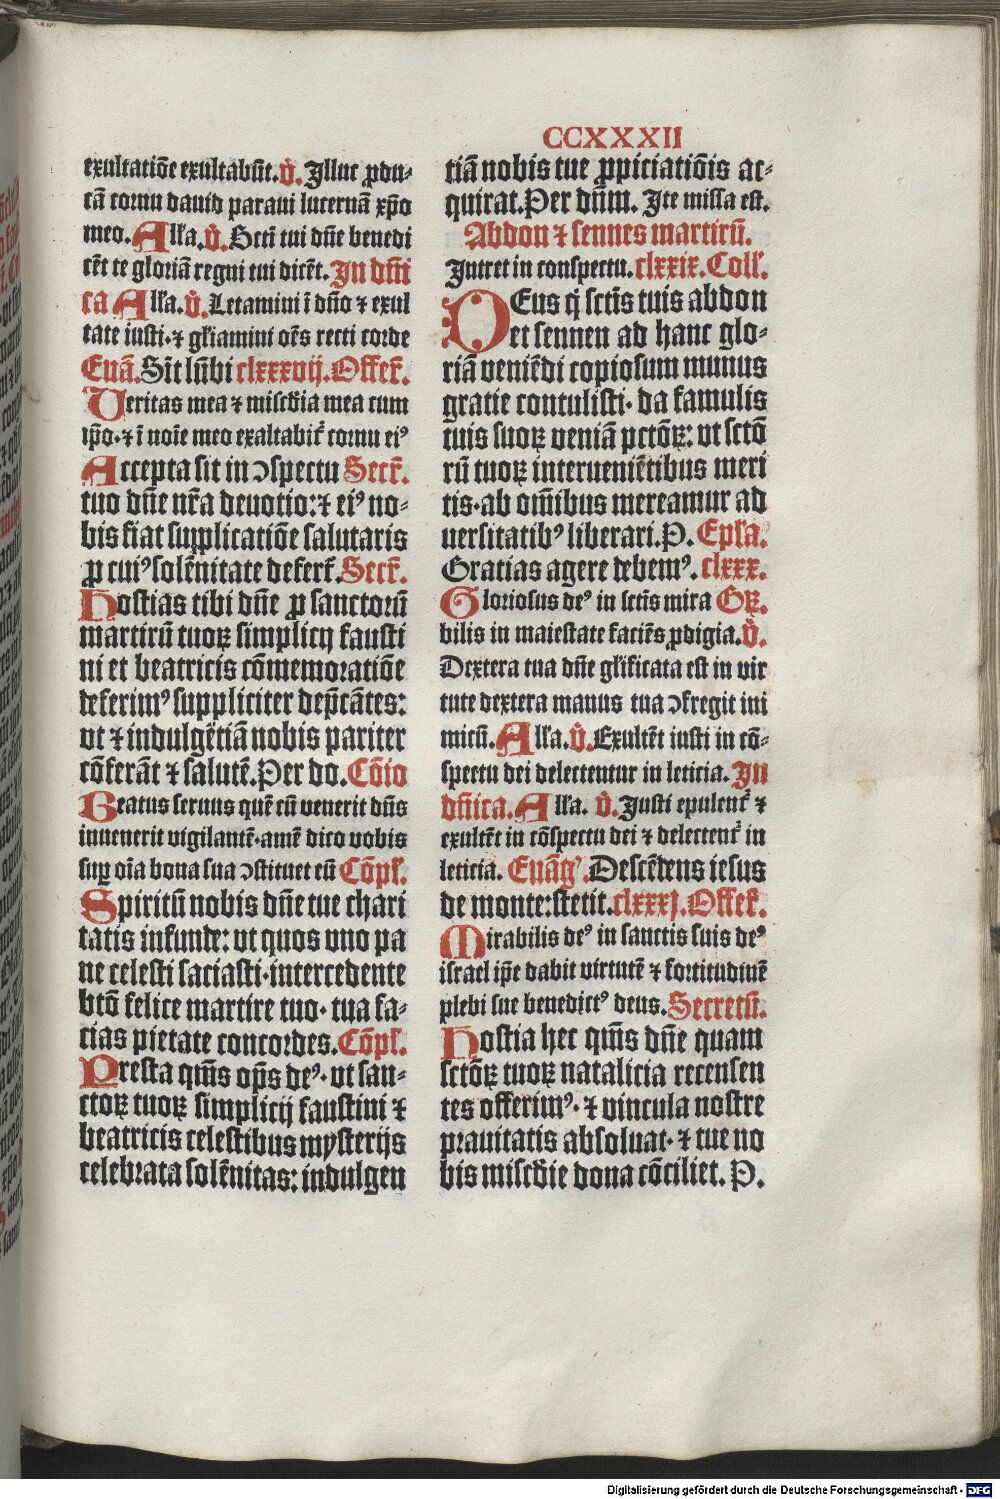 CCXXXII
exultatiōe exultabūt. v̊. Illuc ꝓdu-
cā cornu dauid paraui lucernā xp̄o
meo. Alľa. v̊. Scti tui dn̄e benedi
cēt te gloriā regni tui dicēt. In dn̄i
ca Alľa. v̊. Letamini ī dn̄o ⁊ exul
tate iusti·⁊ gľiamini oēs recti corde
Euā. Sīt lūbi clxxxvij. Offer̄.
Veritas mea ⁊ misc̄dia mea cum
ip̄o·⁊ ī noīe meo exaltabit̄ cornu eiꝰ
Accepta sit in ↄspectu Secr̄.
tuo dn̄e nr̄a deuotio: ⁊ eiꝰ no-
bis fiat supplicatiōe salutaris
ꝓ cuiꝰ solēnitate defert̄. Secr̄.
Hostias tibi dn̄e ꝓ sanctorū
martirū tuoꝝ simplicij fausti
ni et beatricis cōmemoratiōe
deferimꝰ suppliciter dep̄cātes:
vt ⁊ indulgētiā nobis pariter
cōferāt ⁊ salutē. Per do. Cōio
Beatus seruus quē cū venerit dn̄s
inuenerit vigilantē·amē dico vobis
suꝑ oīa bona sua ↄstituet eū Cōpľ.
Spiritū nobis dn̄e tue chari
tatis infunde: vt quos vno pa
ne celesti saciasti·intercedente
btō felice martire tuo· tua fa-
cias pietate concordes. Cōpľ.
Presta qm̄s op̄s deꝰ· vt san-
ctoꝝ tuoꝝ simplicij faustini ⁊
beatricis celestibus mysterijs
celebrata solēnitas: indulgen
tiā nobis tue ꝓpiciatiōis ac-
quirat. Per dn̄m. Ite missa est.
Abdon ⁊ sennes martirū.
Intret in conspectu. clxxix. Coll.
DEus q̇ sctīs tuis abdon
et sennen ad hanc glo-
riā veniēdi copiosum munus
gratie contulisti· da famulis
tuis suoꝝ veniā pctōꝝ: vt sctō
rū tuoꝝ interuenietībus meri
tis·ab om̄ibus mereamur ad
uersitatibꝰ liberari. P. Epľa.
Gratias agere debemꝰ. clxxx.
Gloriosus deꝰ in sctīs mira Gꝝ.
bilis in maiestate faciēs ꝓdigia. v̊.
Dextera tua dn̄e glīficata est in vir
tute dextera manus tua ↄfregit ini
micū. Alľa. v̊. Exultēt iusti in cō-
spectu dei delectentur in leticia. In
dn̄ica. Alľa. v̊. Iusti epulent̄ ⁊
exultēt in cōspectu dei ⁊ delectent̄ in
leticia. Euāgꝰ. Descēdens iesus
de monte: stetit. clxxxj. Offer̄.
Mirabilis deꝰ in sanctis suis deꝰ
israel ip̄e dabit virtutē ⁊ fortitudinē
plebi sue benedictꝰ deus. Secretū.
Hostia hec qm̄s dn̄e quam
sctōꝝ tuoꝝ natalicia recensen
tes offerimꝰ· ⁊ vincula nostre
prauitatis absoluat· ⁊ tue no
bis misc̄die dona cōciliet. P.
Digitalisierung gefördert durch die Deutsche Forschungsgemeinschaft - DFG